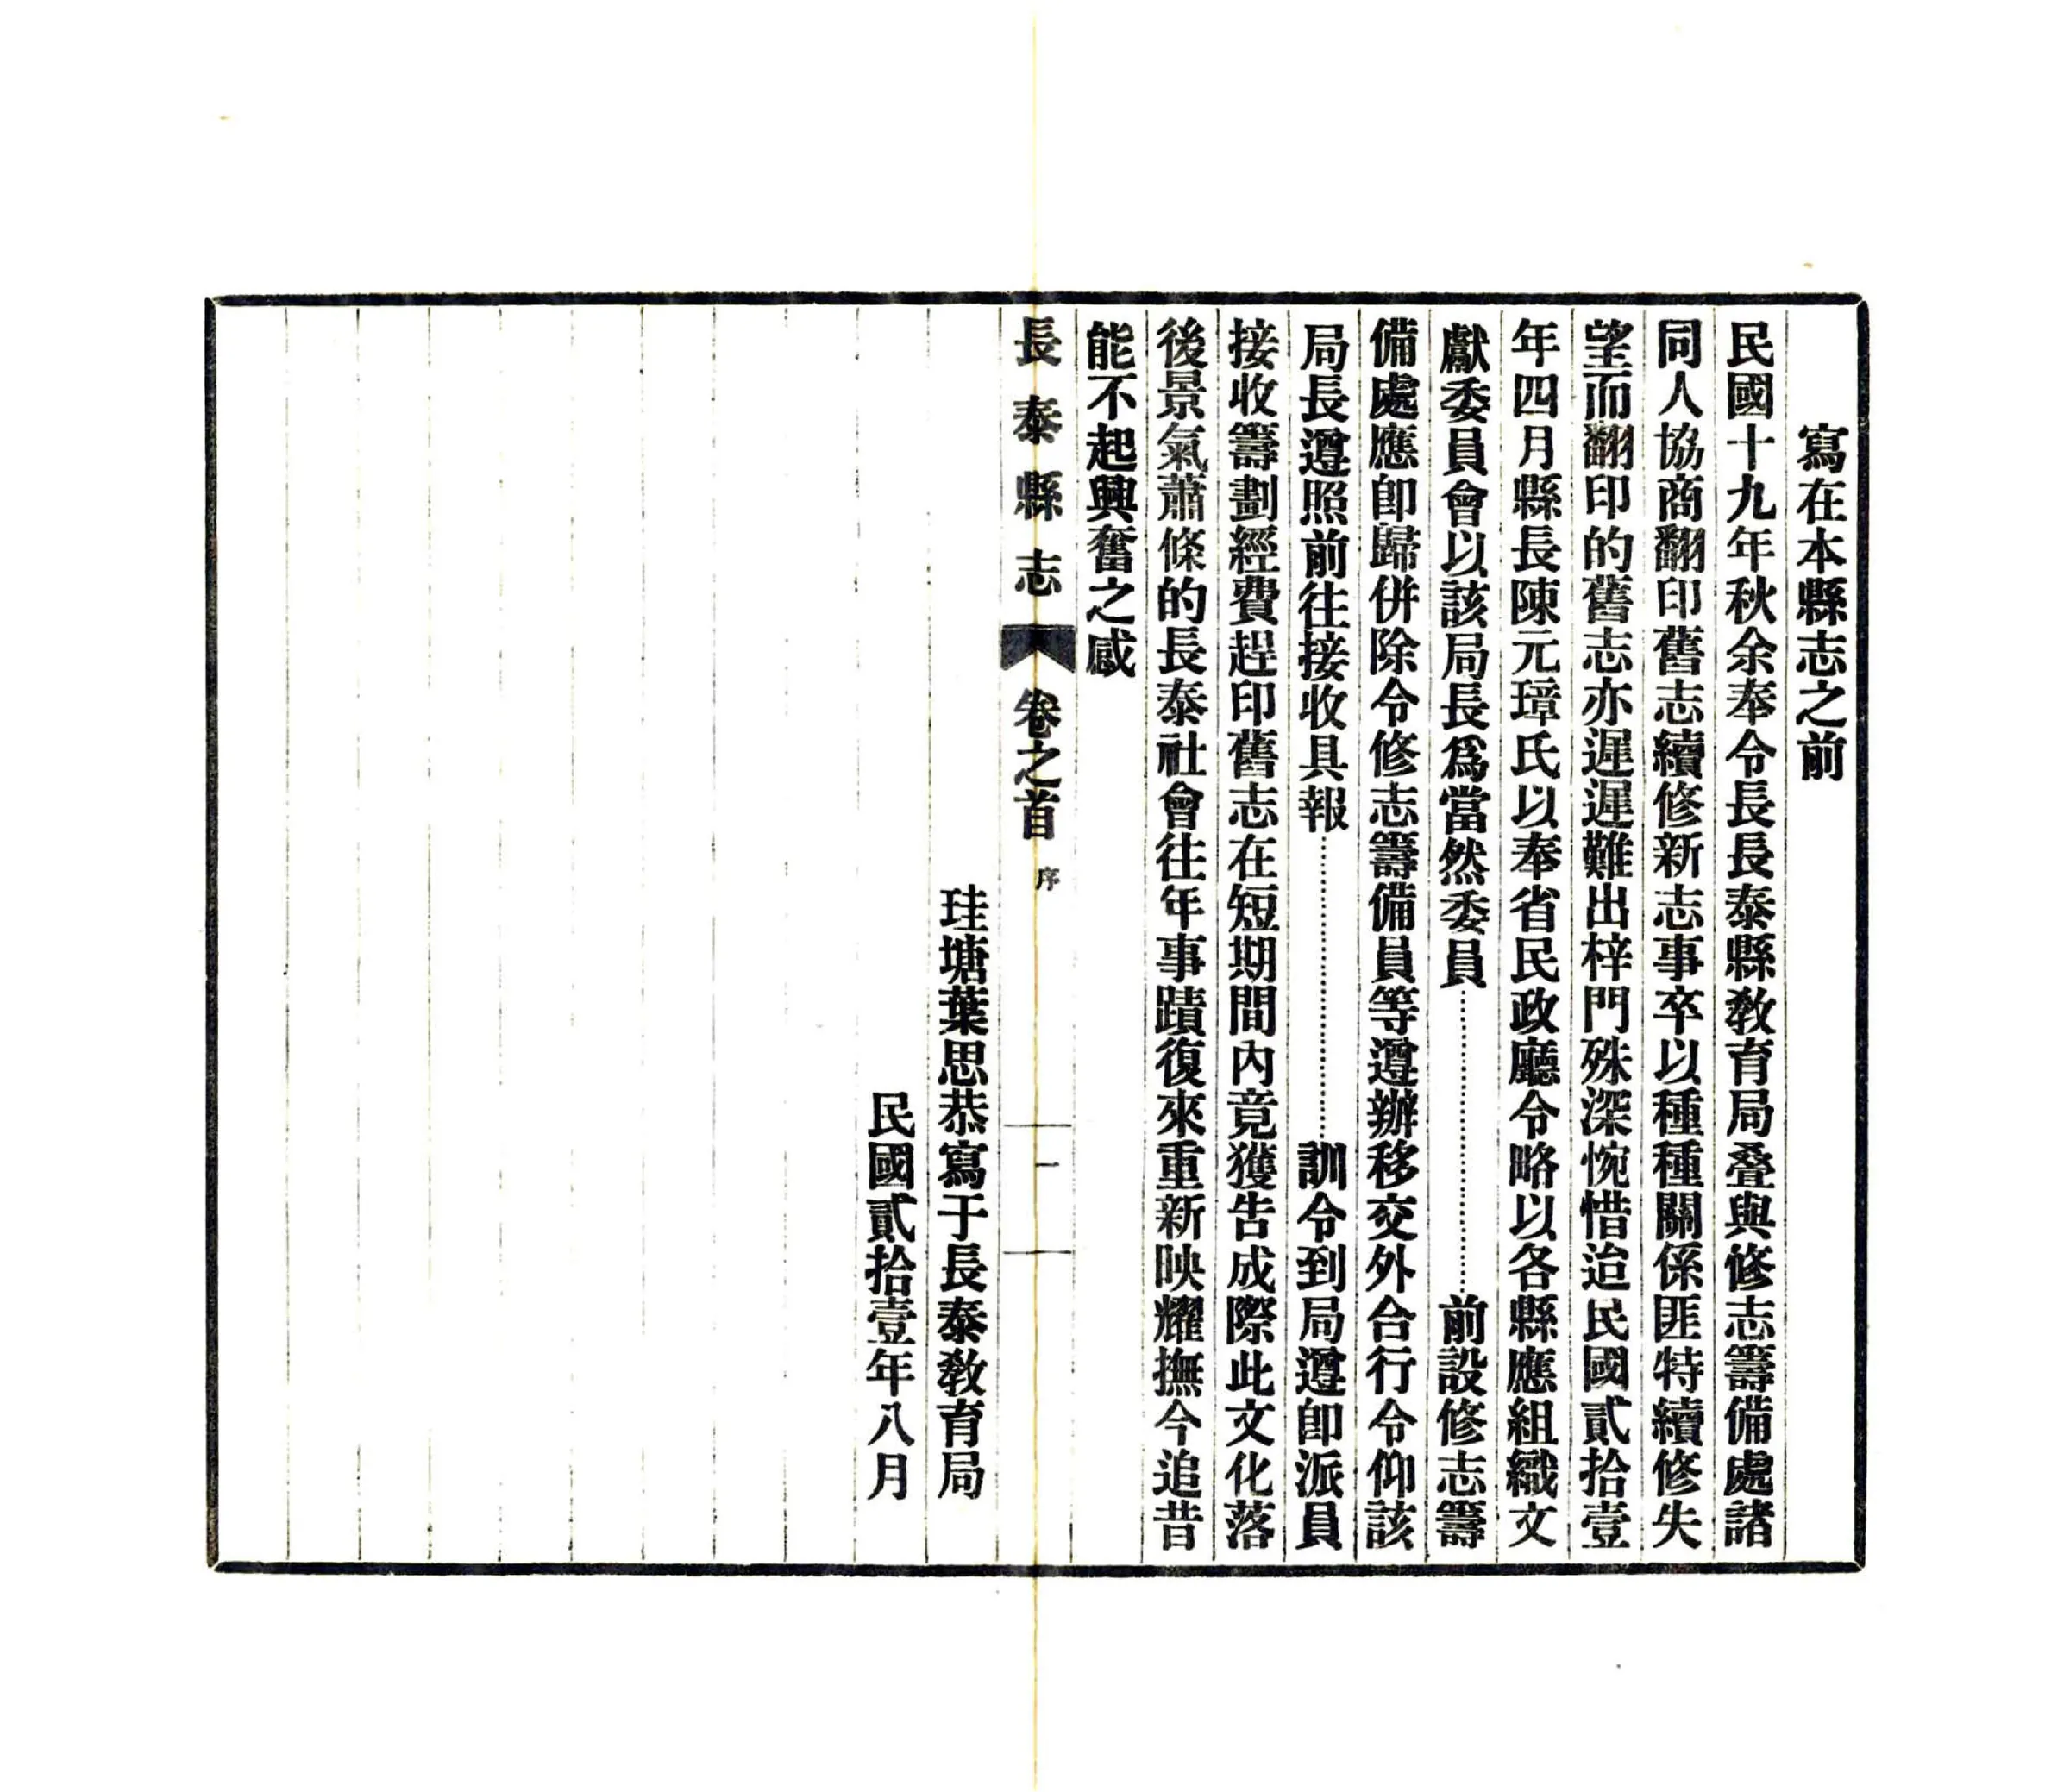 寫在本縣志之前
民國十九年秋余奉令長長泰縣敎育局叠與修志籌備處諸
同人協商翻印舊志續修新志事卒以種種關係匪特續修失
望而翻印的舊志亦遲遲難出梓門殊深惋惜迨民國貳拾壹
年四月縣長陳元璋氏以奉省民政廳令略以各縣應組織文
獻委員會以該局長爲當然委員…………前設修志籌
備處應卽歸併除令修志籌備員等遵辦移交外合行令仰該
局長遵照前往接收具報…………訓令到局遵卽派員
接收籌劃經費趕印舊志在短期間內竟獲告成際此文化落
後景氣蕭條的長泰社會往年事蹟復來重新映耀撫今追昔
能不起興奮之感
長泰縣志 卷之首 序 一
珪塘葉思恭寫于長泰敎育局
民國貳拾壹年八月